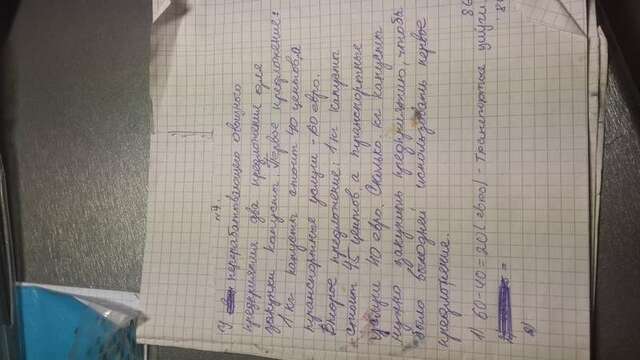 №7.
У перерабатывающего овощного
предприятия два предложения для
закупки капусты. Первое предложение:
1 кг капусты стоит 40 центов, а
транспортные услуги - 60 евро.
Второе предложение: 1 кг капусты
стоит 45 центов, а транспортные
услуги 40 евро. Сколько кг капусты
нужно закупить предприятию, чтобы
было выгодней использовать первое
предложение.
1) 60-40=20( евро) - транспортные услуги
=